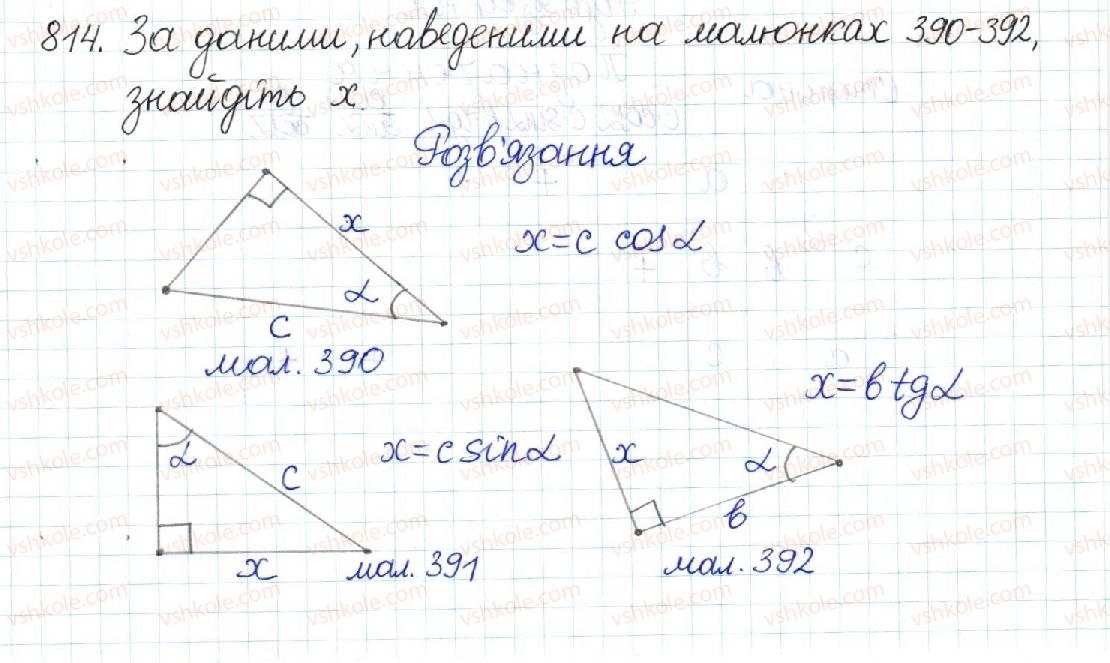 814. За даними, наведеними на малюнках 390-392,
знайдіть x
Розв'язання
x
α
c
x = c cos α
мал. 390
α
c
x
x = c sin α
мал. 391
x = b tg α
x
α
b
мал. 392
vshkole.com